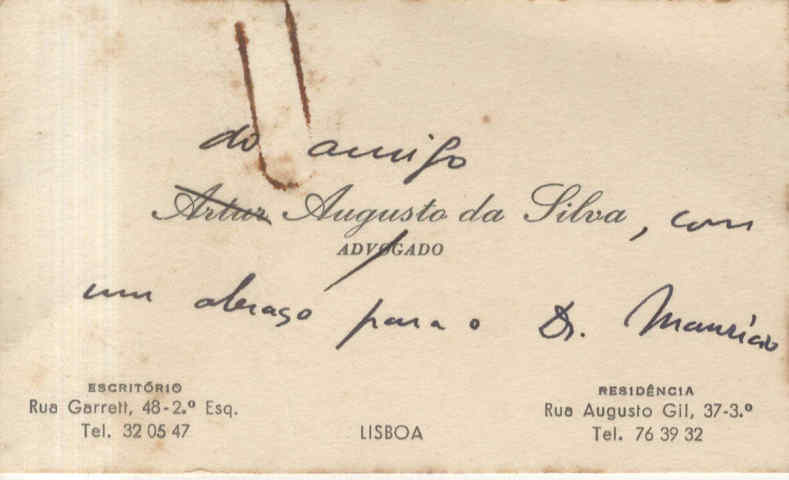 do amigo
Artur Augusto da Silva, com
ADVOGADO
um abraço para o Dr. Maurício
ESCRITÓRIO
Rua Garrett, 48-2.º Esq.
Tel. 32 05 47
LISBOA
RESIDÊNCIA
Rua Augusto Gil, 37-3.º
Tel. 76 39 32